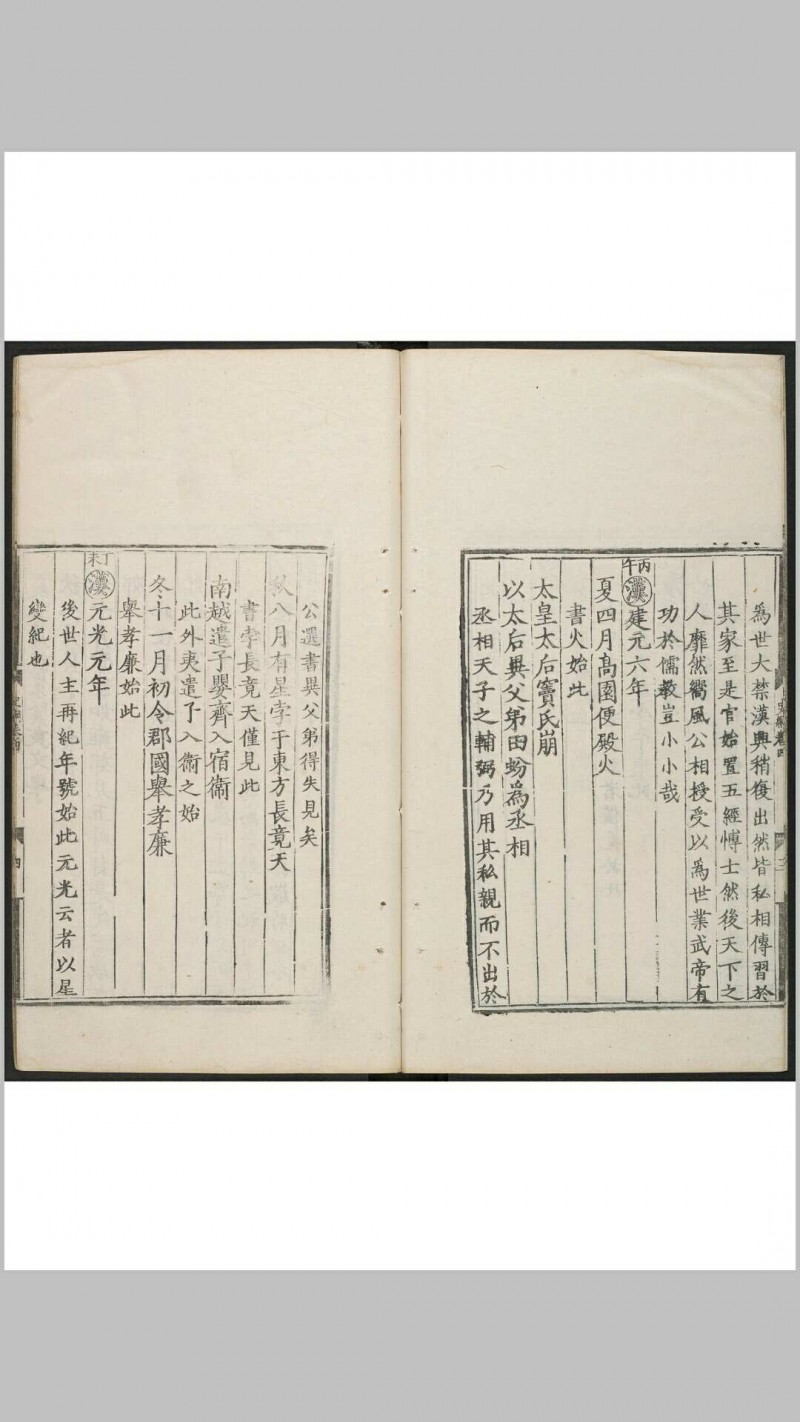 為世大禁漢興稍復出然皆私相傳習於
其家至是官始置五經博士然後天下之
人靡然嚮風公相授受以為世業武帝有
功於儒教豈小小哉
丙午
漢建元六年
夏四月髙園便殿火
書火始此
太皇太后竇氏崩
以太后異父弟田蚡為丞相
丞相天子之輔弼乃用其私親而不出於
公選書異父弟得失見矣
秋八月有星孛于東方長竟天
書孛長竟天僅見此
南越遣子嬰齊入宿衛
此外夷遣子入衛之始
冬十一月初令郡國舉孝廉
舉孝廉始此
丁未
漢元光元年
後世人主再紀年號始此元光云者以星
變紀也
四